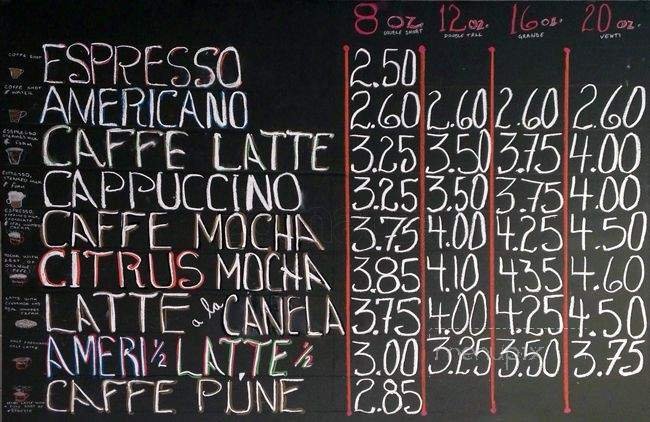 8 oz. 12 oz. 16 oz. 20 oz.
DOUBLE SHORT DOUBLE TALL GRANDE VENTI
COFFEE SHOT ESPRESSO 2.50
COFFEE SHOT & WATER AMERICANO 2.60 2.60 2.60 2.60
ESPRESSO STEAMED MILK & FOAM CAFFE LATTE 3.25 3.50 3.75 4.00
ESPRESSO, STEAMED MILK & FOAM CAPPUCCINO 3.25 3.50 3.75 4.00
ESPRESSO, CAFFE MOCHA 3.75 4.00 4.25 4.50
MOCHA WITH ORANGE CITRUS MOCHA 3.85 4.10 4.35 4.60
LATTE WITH LATTE a la CANELA 3.75 4.00 4.25 4.50
HALF LATTE AMERI ½ LATTE ½ 3.00 3.25 3.50 3.75
CAFFE PUNE 2.85
menupix